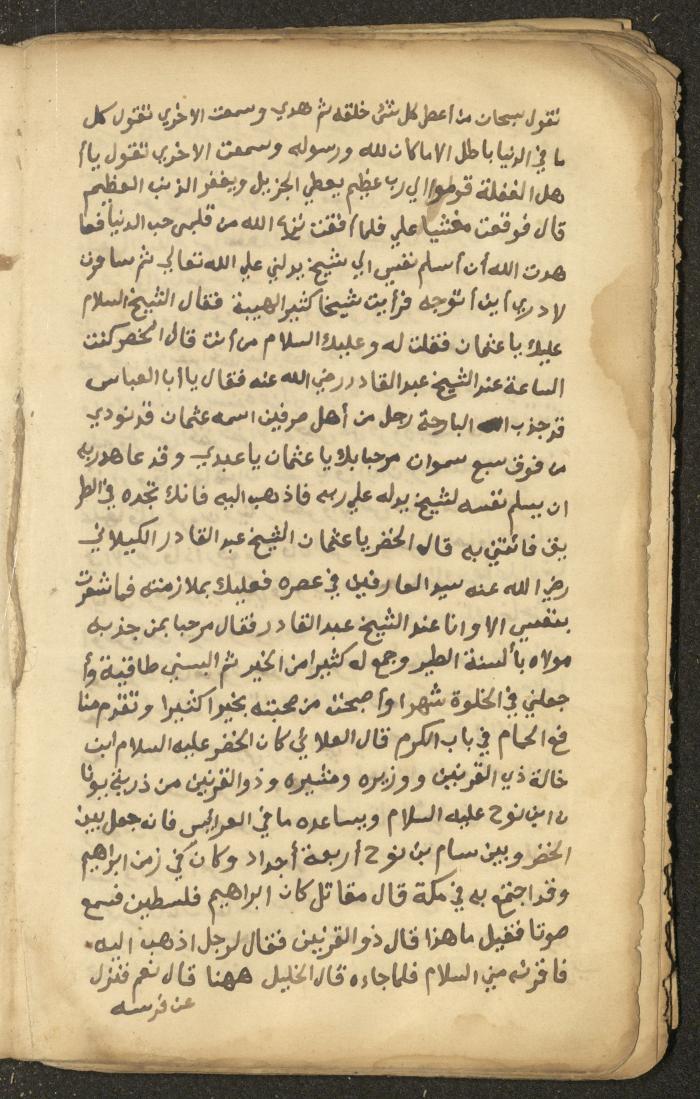 تقول سبحان من أعطى كل شئ خلقه ثم هدي وسمعت الاخري تقول كل
ما في الدنيا باطل الا ما كان لله ورسوله وسمعت الاخري تقول يا أ
هل الغفلة قوموا الي رب عظيم يعطي الجزيل ويغفر الذنب العظيم
قال فوقعت مغشيا علي فلما أفقت نزع الله من قلبي حب الدنيا فعا
هدت الله أن أسلم نفسي الي شيخ يدلني علي الله تعالي ثم سافرت
لا دري أين أتوجه فرأيت شيخا كثير الهيبة فقال الشيخ السلام
عليك يا عثمان فقلت له وعليك السلام من أنت قال الخضر كنت
الساعة عند الشيخ عبد القادر رضي الله عنه فقال يا أبا العباس
قد جذب البارحة رجل من أهل صرفين اسمه عثمان قد نودي
من فوق سبع سموات مرحبا بك يا عثمان يا عبدي وقد عاهد ربه
ان يسلم نفسه لشيخ يدله علي ربه فاذهب اليه فانك تجده في الطر
يق فائتني به قال الخضر يا عثمان الشيخ عبد القادر الكيلاني
رضي الله عنه سيد العارفين في عصره فعليك بملازمته فما شعرت
بنفسي الا وانا عند الشيخ عبد القادر فقال مرحبا بمن جذبه
مولاه بألسنة الطير وجمع له كثيرا من الخير ثم البسني طاقية وأ
جعلني في الخلوة شهرا وأصبحت من صحبته بخير اكثيرا وتقدم منا
فع الحمام في باب الكرم قال العلائي كان الخضر عليه السلام ابن
خالة ذي القرنين ووزيره ومشيره وذو القرنين من ذرية يونا
ن ابن نوح عليه السلام ويساعده ما في العرائس فانه جعل بين
الخضر وبين سام بن نوح أربعة أجداد وكان في زمن ابراهيم
وقد اجتمع به في مكة قال مقاتل كان ابراهيم فلسطين فسمع
صوتا فقيل ما هذا قال ذو القرنين فقال لرجل اذهب اليه
فاقرئه مني السلام فلما جاءه قال الخليل ههنا قال نعم فنزل
عن فرسه